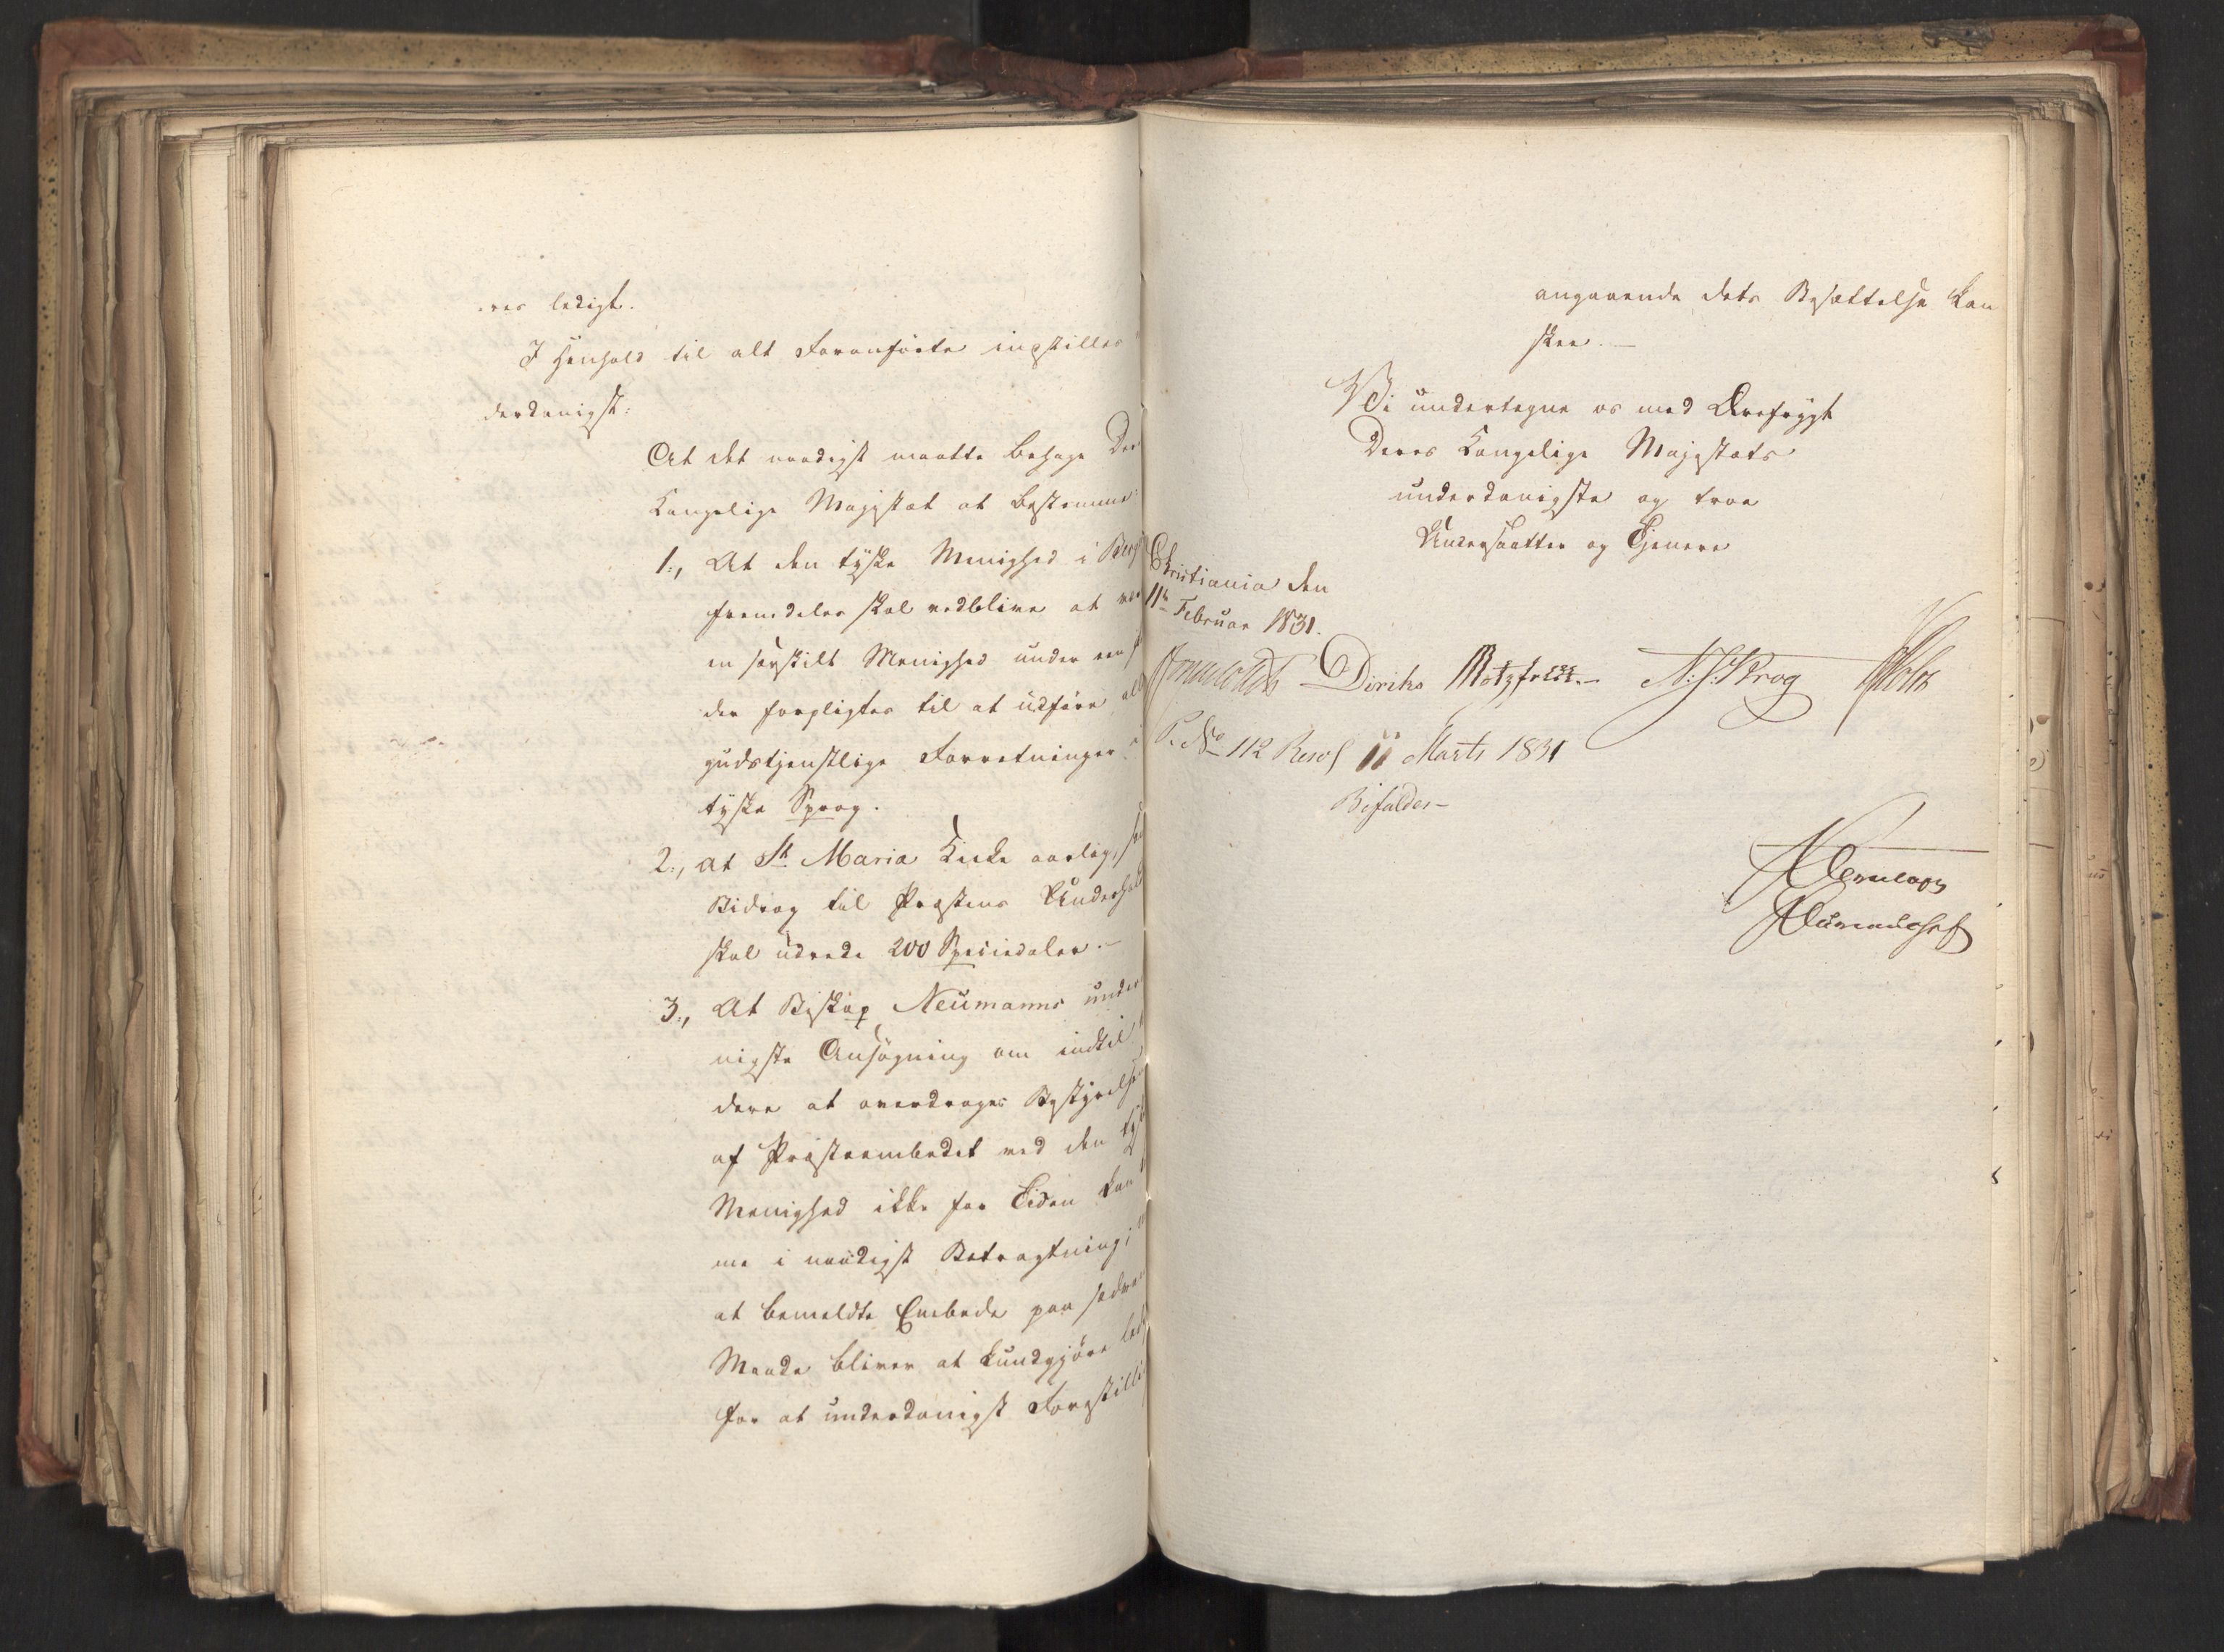 res ledigt.
I Henhold til alt Foranførte indstilles
derdanigst:
At det naadigst maatte behage De
Kongelige Majestæt at bestemme:
1., At den tydske Menighed i Berg
fremdeles skal vedblive at væ
en særskilt Menighed under een
der forpligtes til at udføre alle
gudstjenstlige Forretninger i
tydske Sprog.
2., at St Maria Kirke aarlig, so
Bidrag til Præstens Underhold
skal udrede 200 Speciedaler.—
3., At Biskop Neumanns under
nigste Ansøgning om indtil
dere at overdrages Bestyrelse
af Præsteembedet ved den tyd
Menighed ikke for Tiden kan
me i naadigst Betragtning;
at bemeldte Embede paa sædva
Maade bliver at kundgjøre led
før at underdanigst Forestilli
angaaende dets Besættelse kan
skee.—
Vi undertegne os med Ærefrygt
Deres Kongelige Majestæts
underdanigste og troe
Undersaatter og Tjenere
Christiania den
11te Februar 1831.
Diriks Motzfeldt.— N. J. Krog Holst
P. No 112 Resol 11 Marts 1831
Bifaldes—